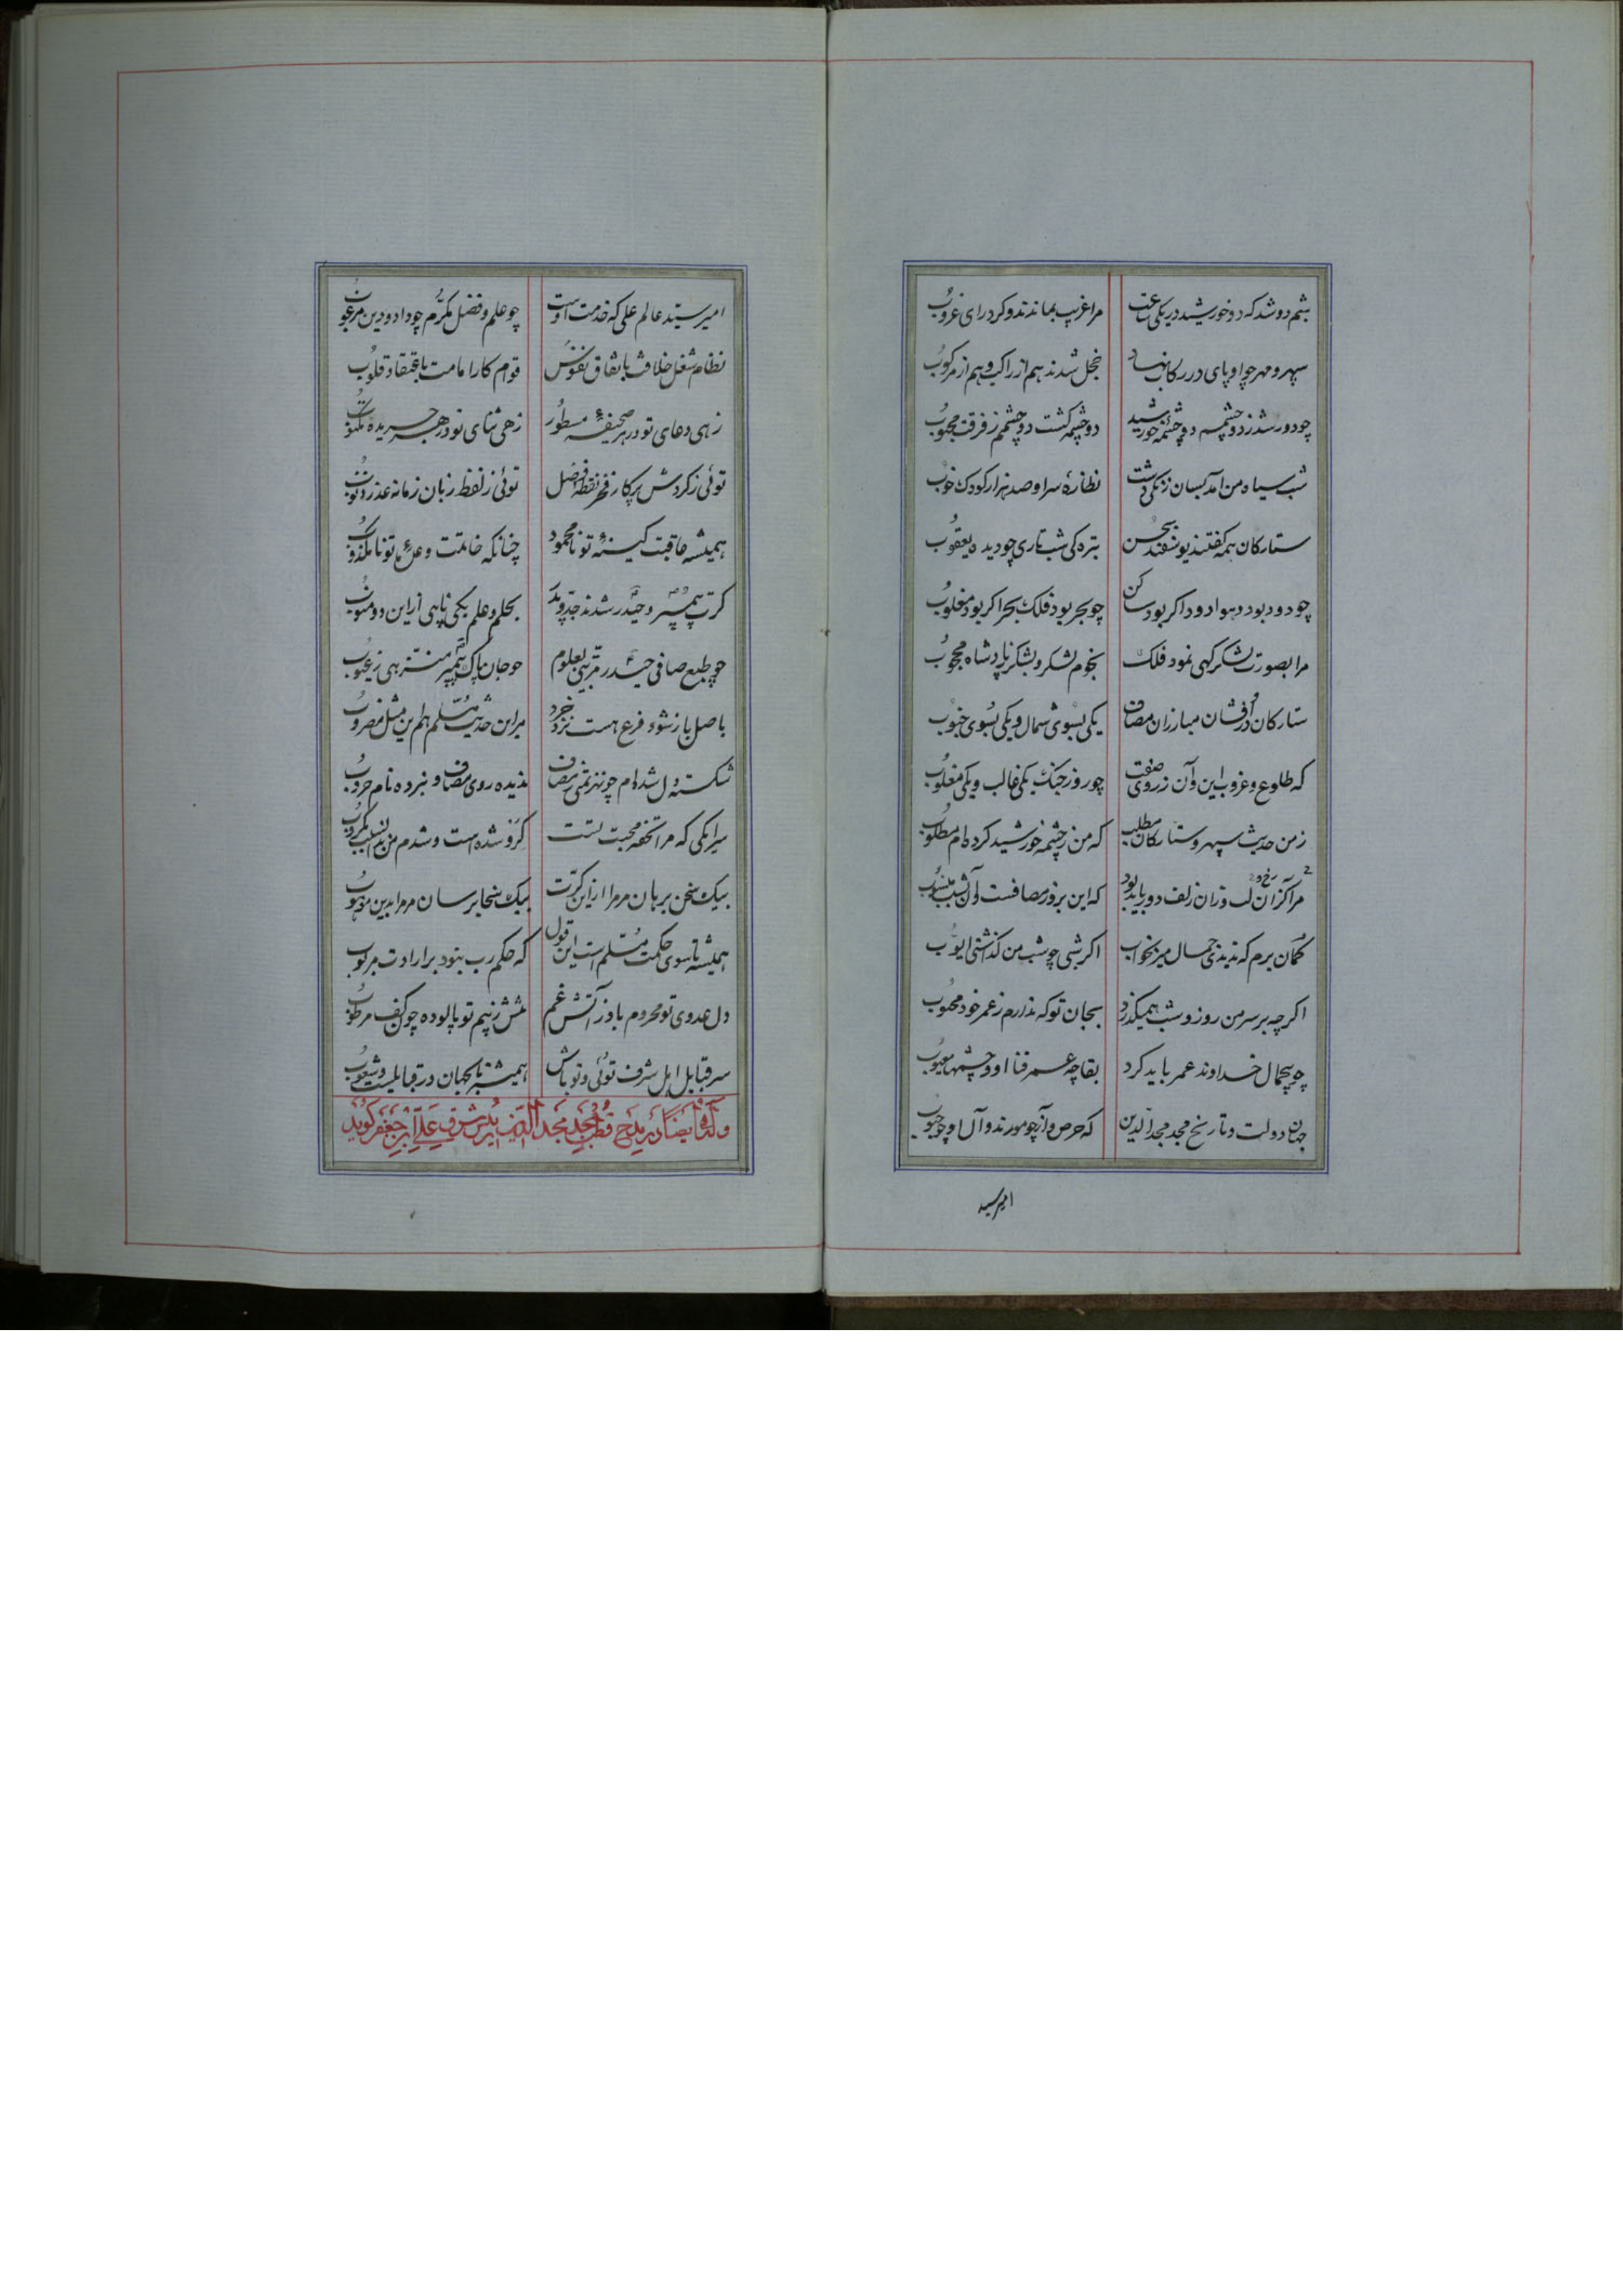 شبم دو شد که دو خورشید در یکی ساعت مرا غریب بماندند و کرد رای غروب
سپهر و مهر چو او پای در رکاب نهاد خجل شدند هم از راکب و هم از مرکوب
چو دور شد ز دو چشمم دو چشمه خورشید دو چشمه گشت دو چشمم ز فرقت محبوب
شب سیاه من آمد بسان زنگی زشت نظاره سر او صد هزار کودک خوب
ستارکان همه کفتند یوسفند بحسن بتره کی شب تاری چو دیده یعقوب
چو دود بود دهوا دود اکر بود ساکن چو بحر بود فلک بحر اکر بود مغلوب
مرا بصورت لشکرکهی نمود فلک نجوم لشکر و لشکر ز پادشاه محجوب
ستارکان درفشان مبارزان مصاف یکی بسوی شمال و یکی بسوی جنوب
که طلوع و غروب این و آن ز روی صفت چو روز جنک یکی غالب و یکی مغلوب
ز من حدیث سپهر و ستارکان مطلب که من ز چشمه خورشید کرده ام مطلوب
مرا کر زان لب وزان زلف دور باید بود رخ و که این بروز مصافست و آن بشب منسوب
کمان برم که ندیدی جمال میر بخواب اکر شبی چو شب من کذشتی ایوب
اکرچه بر سر من روز و شب همیکذرد بجان تو که ندارم ز عمر خود محسوب
چو بیجمال خداوند عمر باید کرد بقا چه عمر فنا او و چشمها معیوب
جهان دولت و تاریخ مجد مجدالدین که حرص و آز چو مورند و آل او چو حبوب
امیر سید
امیر سید عالم علی که خدمت اوست چو علم و فضل مکرم چو داد و دین مرغوب
نظام شغل خلافت باتفاق نفوس قوام کار امامت باعتقاد قلوب
زهی دعای تو در هر صحیفه مسطور زهی ثنای تو در هر جریده مکتوب
توئی ز کردش پرکار فخر نقطه فضل توئی ز لفظ زبان زمانه عذر ذنوب
همیشه عاقبت کینه تو نامحمود چنانکه خاتمت وعده تو نامکذوب
کرت پیمبر و حیدر شدند جد و پدر بحلم و علم بکی ناپی از این دو منسوب
چو طبع صافی حیدر مزینی بعلوم چو جان پاک پیمبر منزهی ز عیوب
باصل باز شود فرع هست نزد خرد مر این حدیث مسلم هم این مثل مضروب
شکسته دل شده ام چون هزیمتی ز مصاف ندیده روی مصاف و نبرده نام حروب
همیشه تا سوی حکمت مسلم است این قول که حکم رب نبود بر ارادت مربوب
دل عدوی تو محروم باد ز آتش غم تنش ز بیم تو پالوده چون کف مرطوب
سر قبایل اهل شرف توئی و تو باش همیشه تا بجهان در قبایلست و شعوب
وله ایضا در مدح قطب مجد مجدالدین شرف علی ابن جعفر کوید